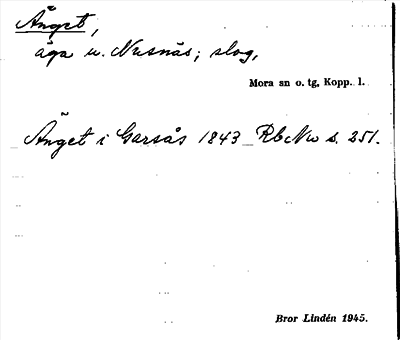 Änget,
äga u. Nusnäs; slog,
Mora sn o. tg, Kopp. l.
Änget i Garsås 1843 RbNw s. 251.
Bror Lindén 1945.